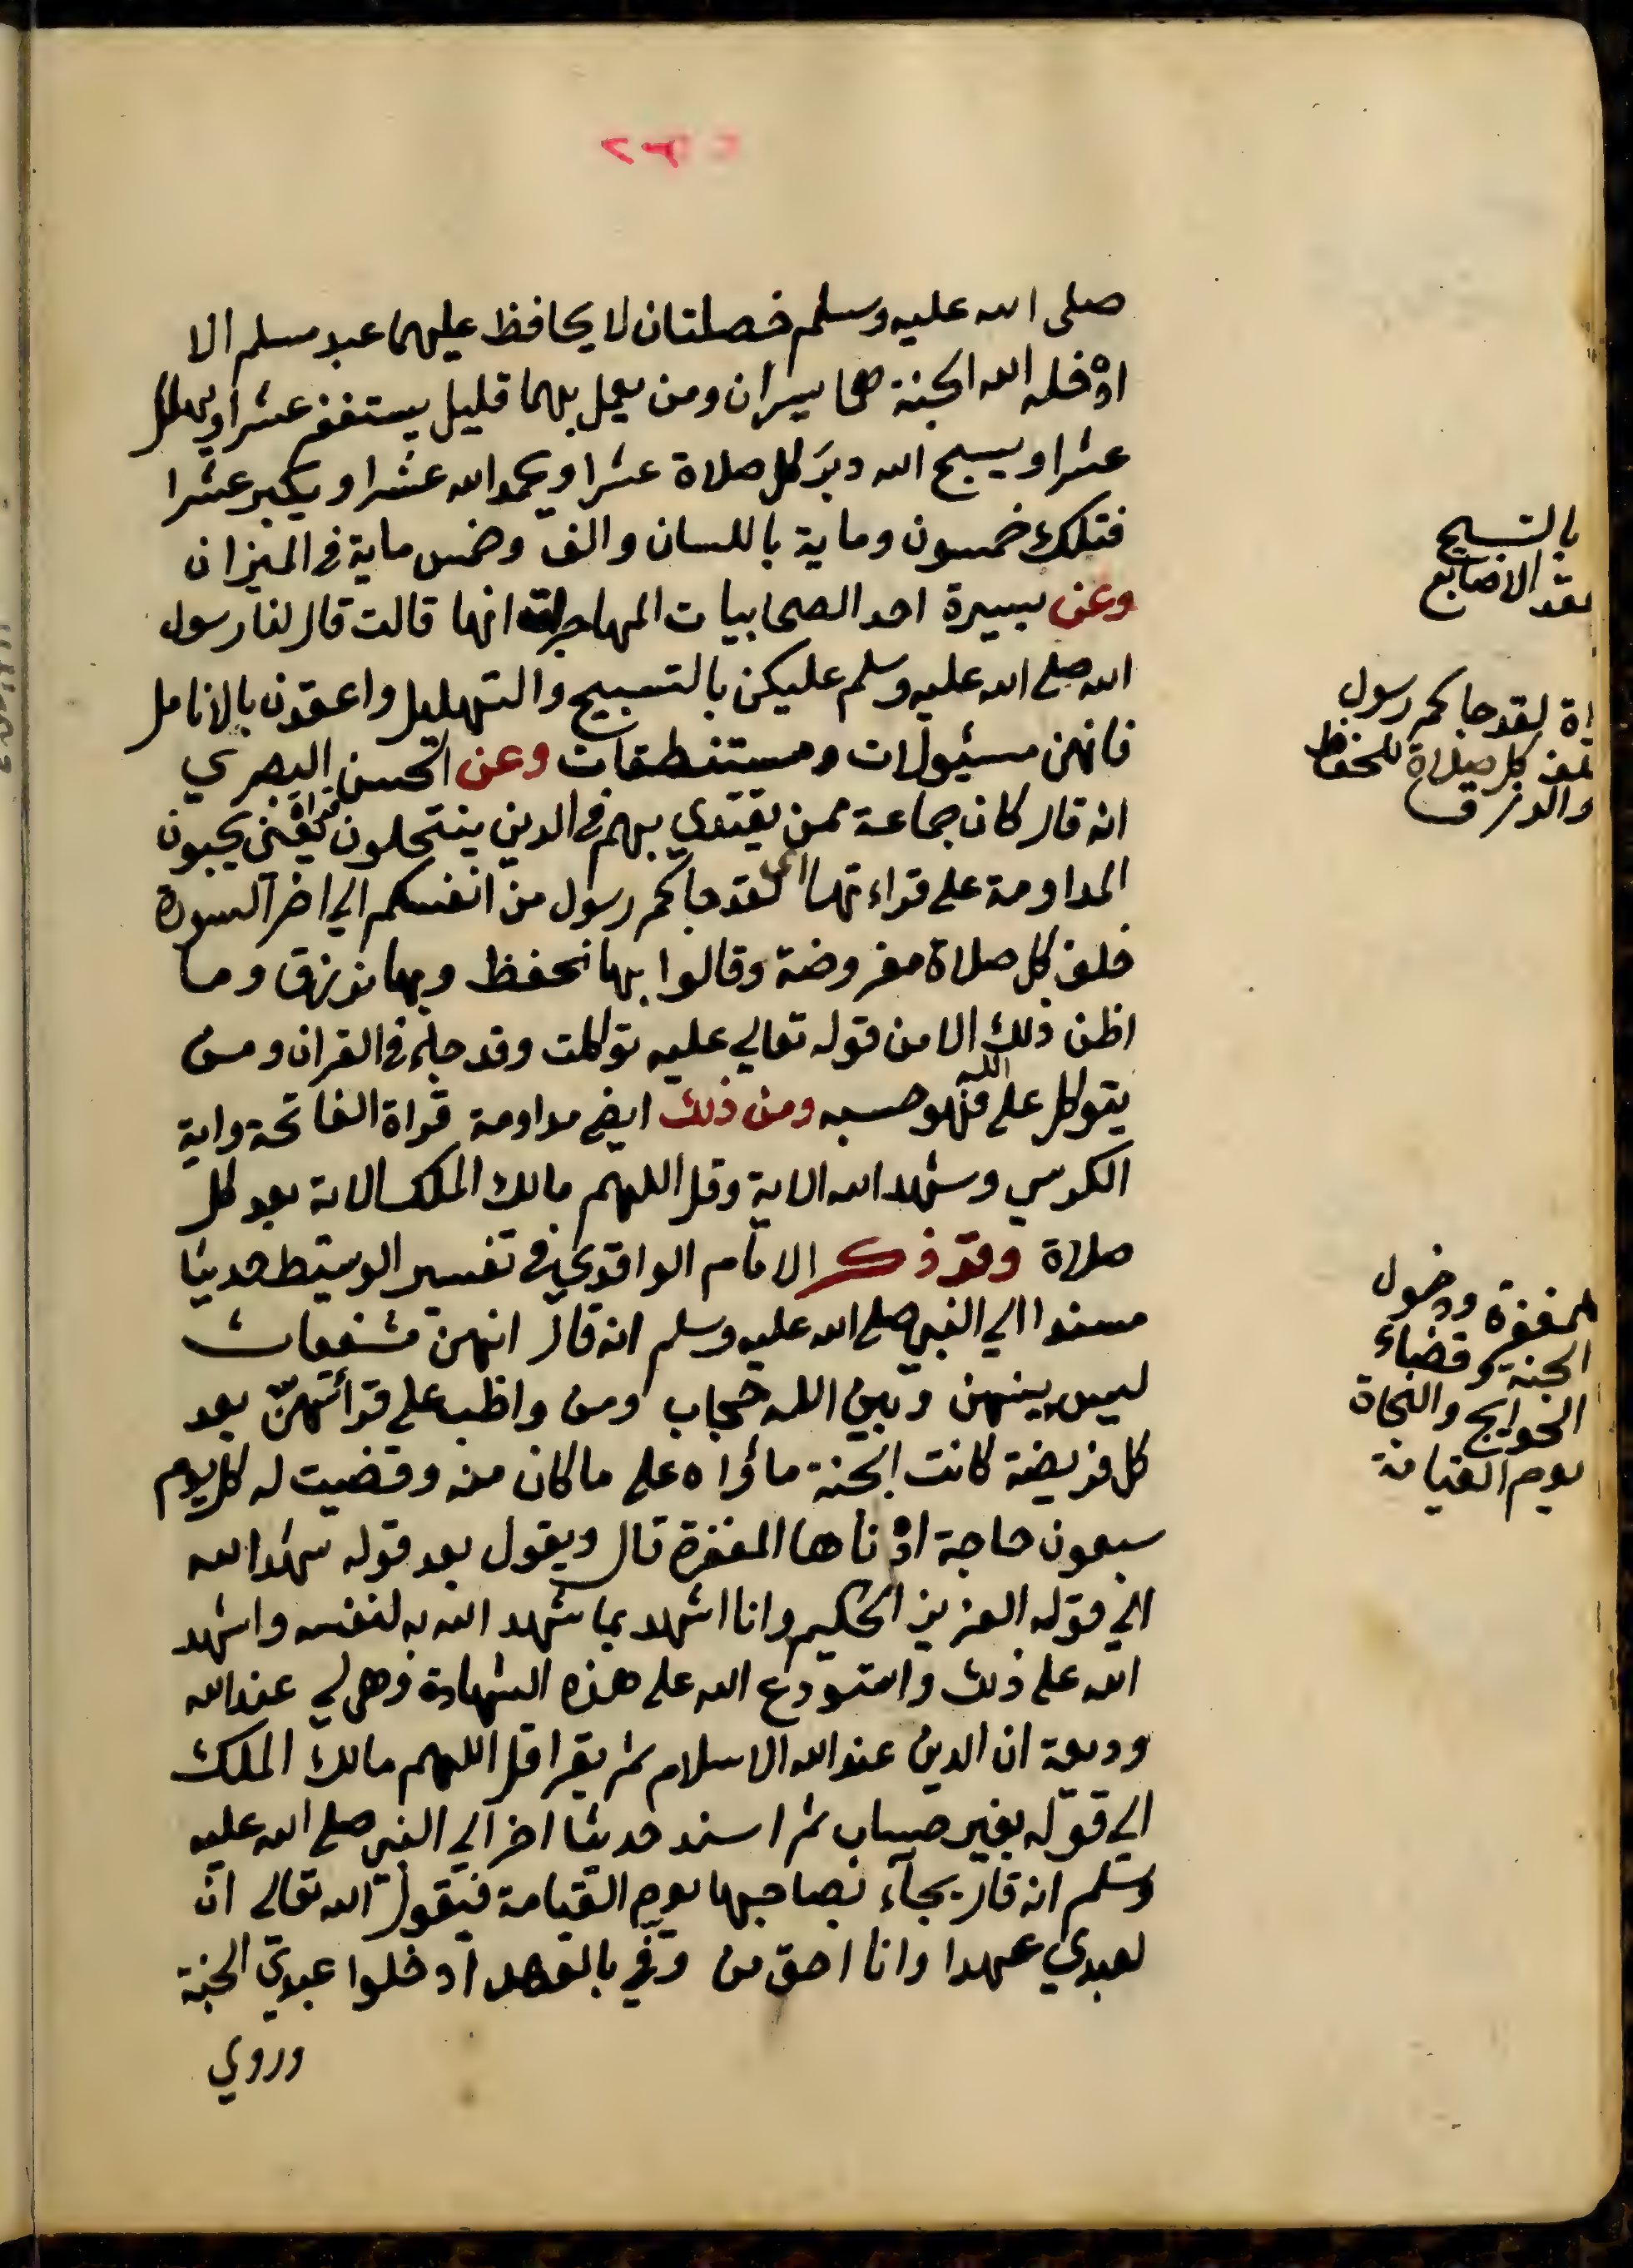 صلى الله عليه وسلم خصلتان لا يحافظ عليهما عبد مسلم الا
ادخله الله الجنة هما يسيران ومن يعمل بهما قليل يستغفر عشرا ويهلل
عشرا ويسبح الله دبر كل صلاة عشرا ويحمد الله عشرا ويكبر عشرا
فتلك خمسون وماية باللسان والف وخمس ماية في الميزان
وعن يسيرة احد الصحابيات المهاجرات انها قالت قال لنا رسول
الله صلى الله عليه وسلم عليكن بالتسبيح والتهليل واعقدن بالانامل
فانهن مسئولات ومستنطقات وعن الحسن البصري
انه قال كان جماعة ممن يقتدي بهم في الدين ينتحلون يعني يحبون
المداومة على قراءتها لقد جاكم رسول من انفسكم الى اخر السورة
خلف كل صلاة مفروضة وقالوا بها نحفظ وبها نرزق وما
اظن ذلك الا من قوله تعالى عليه توكلت وقد جاء في القران ومن
يتوكل على الله فهو حسبه ومن ذلك ايض مداومة قراة الفاتحة واية
الكرسي وشهد الله الاية وقل اللهم مالك الملك الاية بعد كل
صلاة وقد ذكر الامام الواقدي في تفسير الوسيط حديثا
مسندا الى النبي صلى الله عليه وسلم انه قال انهن مشفعات
ليس بينهن وبين الله حجاب ومن واظب على قرائتهن بعد
كل فريضة كانت الجنة ماواه على ما كان منه وقضيت له كل يوم
سبعون حاجة ادناها المغفرة قال ويقول بعد قوله شهد الله
الى قوله العزيز الحكيم وانا اشهد بما شهد الله به لنفسه واشهد
الله على ذلك واستودع الله على هذه الشهادة وهي لي عند الله
وديعة ان الدين عند الله الاسلام ثم يقرا قل اللهم مالك الملك
الى قوله بغير حساب ثم اسند حديثا اخر الى النبي صلى الله عليه
وسلم انه قال يجاء بصاحبها يوم القيامة فيقول الله تعالى ان
لعبدي عهدا وانا احق من وفي بالعهد ادخلوا عبدي الجنة
وروي
بالتسبيح
بعقد الاصابع
لقد جاكم رسول
كل صلاة للحفظ
والرزق
للمغفرة ودخول
الجنة وقضاء
الحوايج والنجاة
يوم القيامة